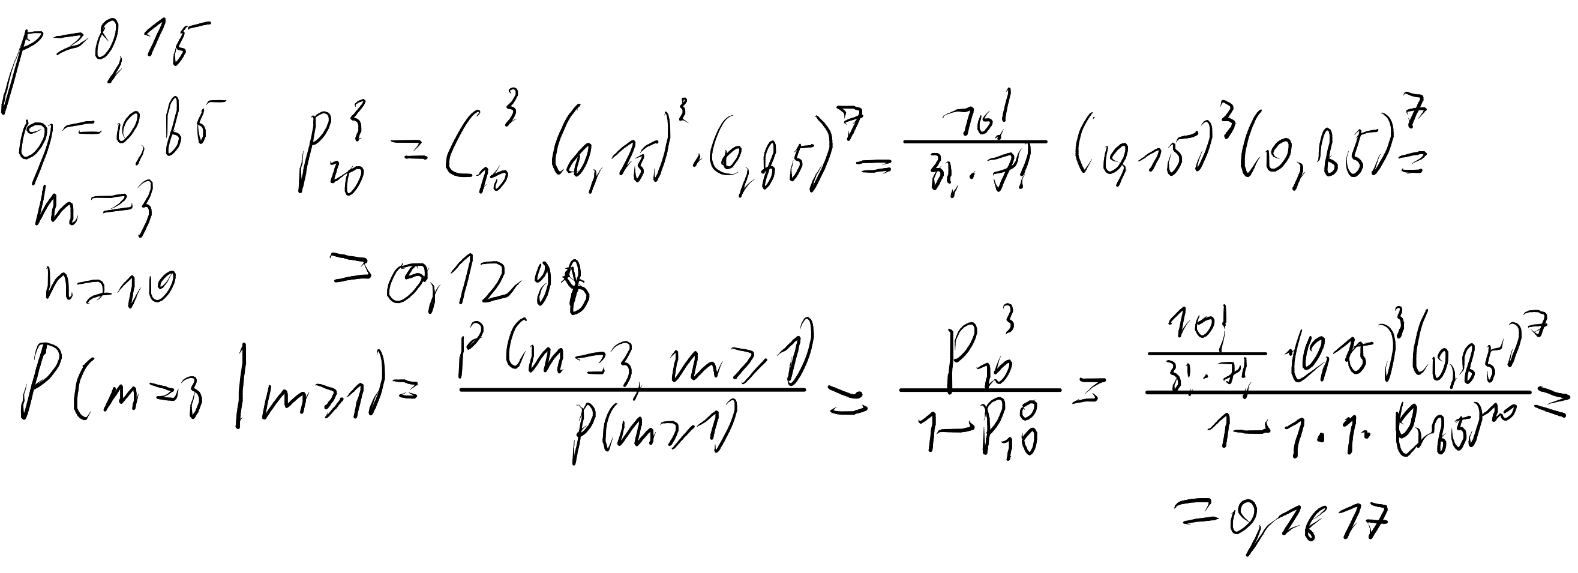 p=0,15
q=0,85
P₁₀³ = C₁₀³ (0,15)³·(0,85)⁷ = 10!/(3!·7!) (0,15)³(0,85)⁷ =
m=3
n=10
=0,1298
P(m=3 | m≥1) = P(m=3, m≥1)/P(m≥1) = P₁₀³/(1-P₁₀⁰) = (10!/(3!·7!) ·(0,15)³(0,85)⁷)/(1-1·1·(0,85)¹⁰) =
=0,1617